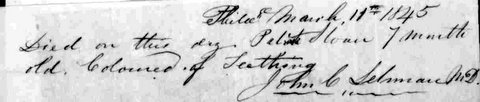 Philada March, 11th 1845
Died on this day Sloan 7 month
old. Coloured of Teething
John C Lehman MD.